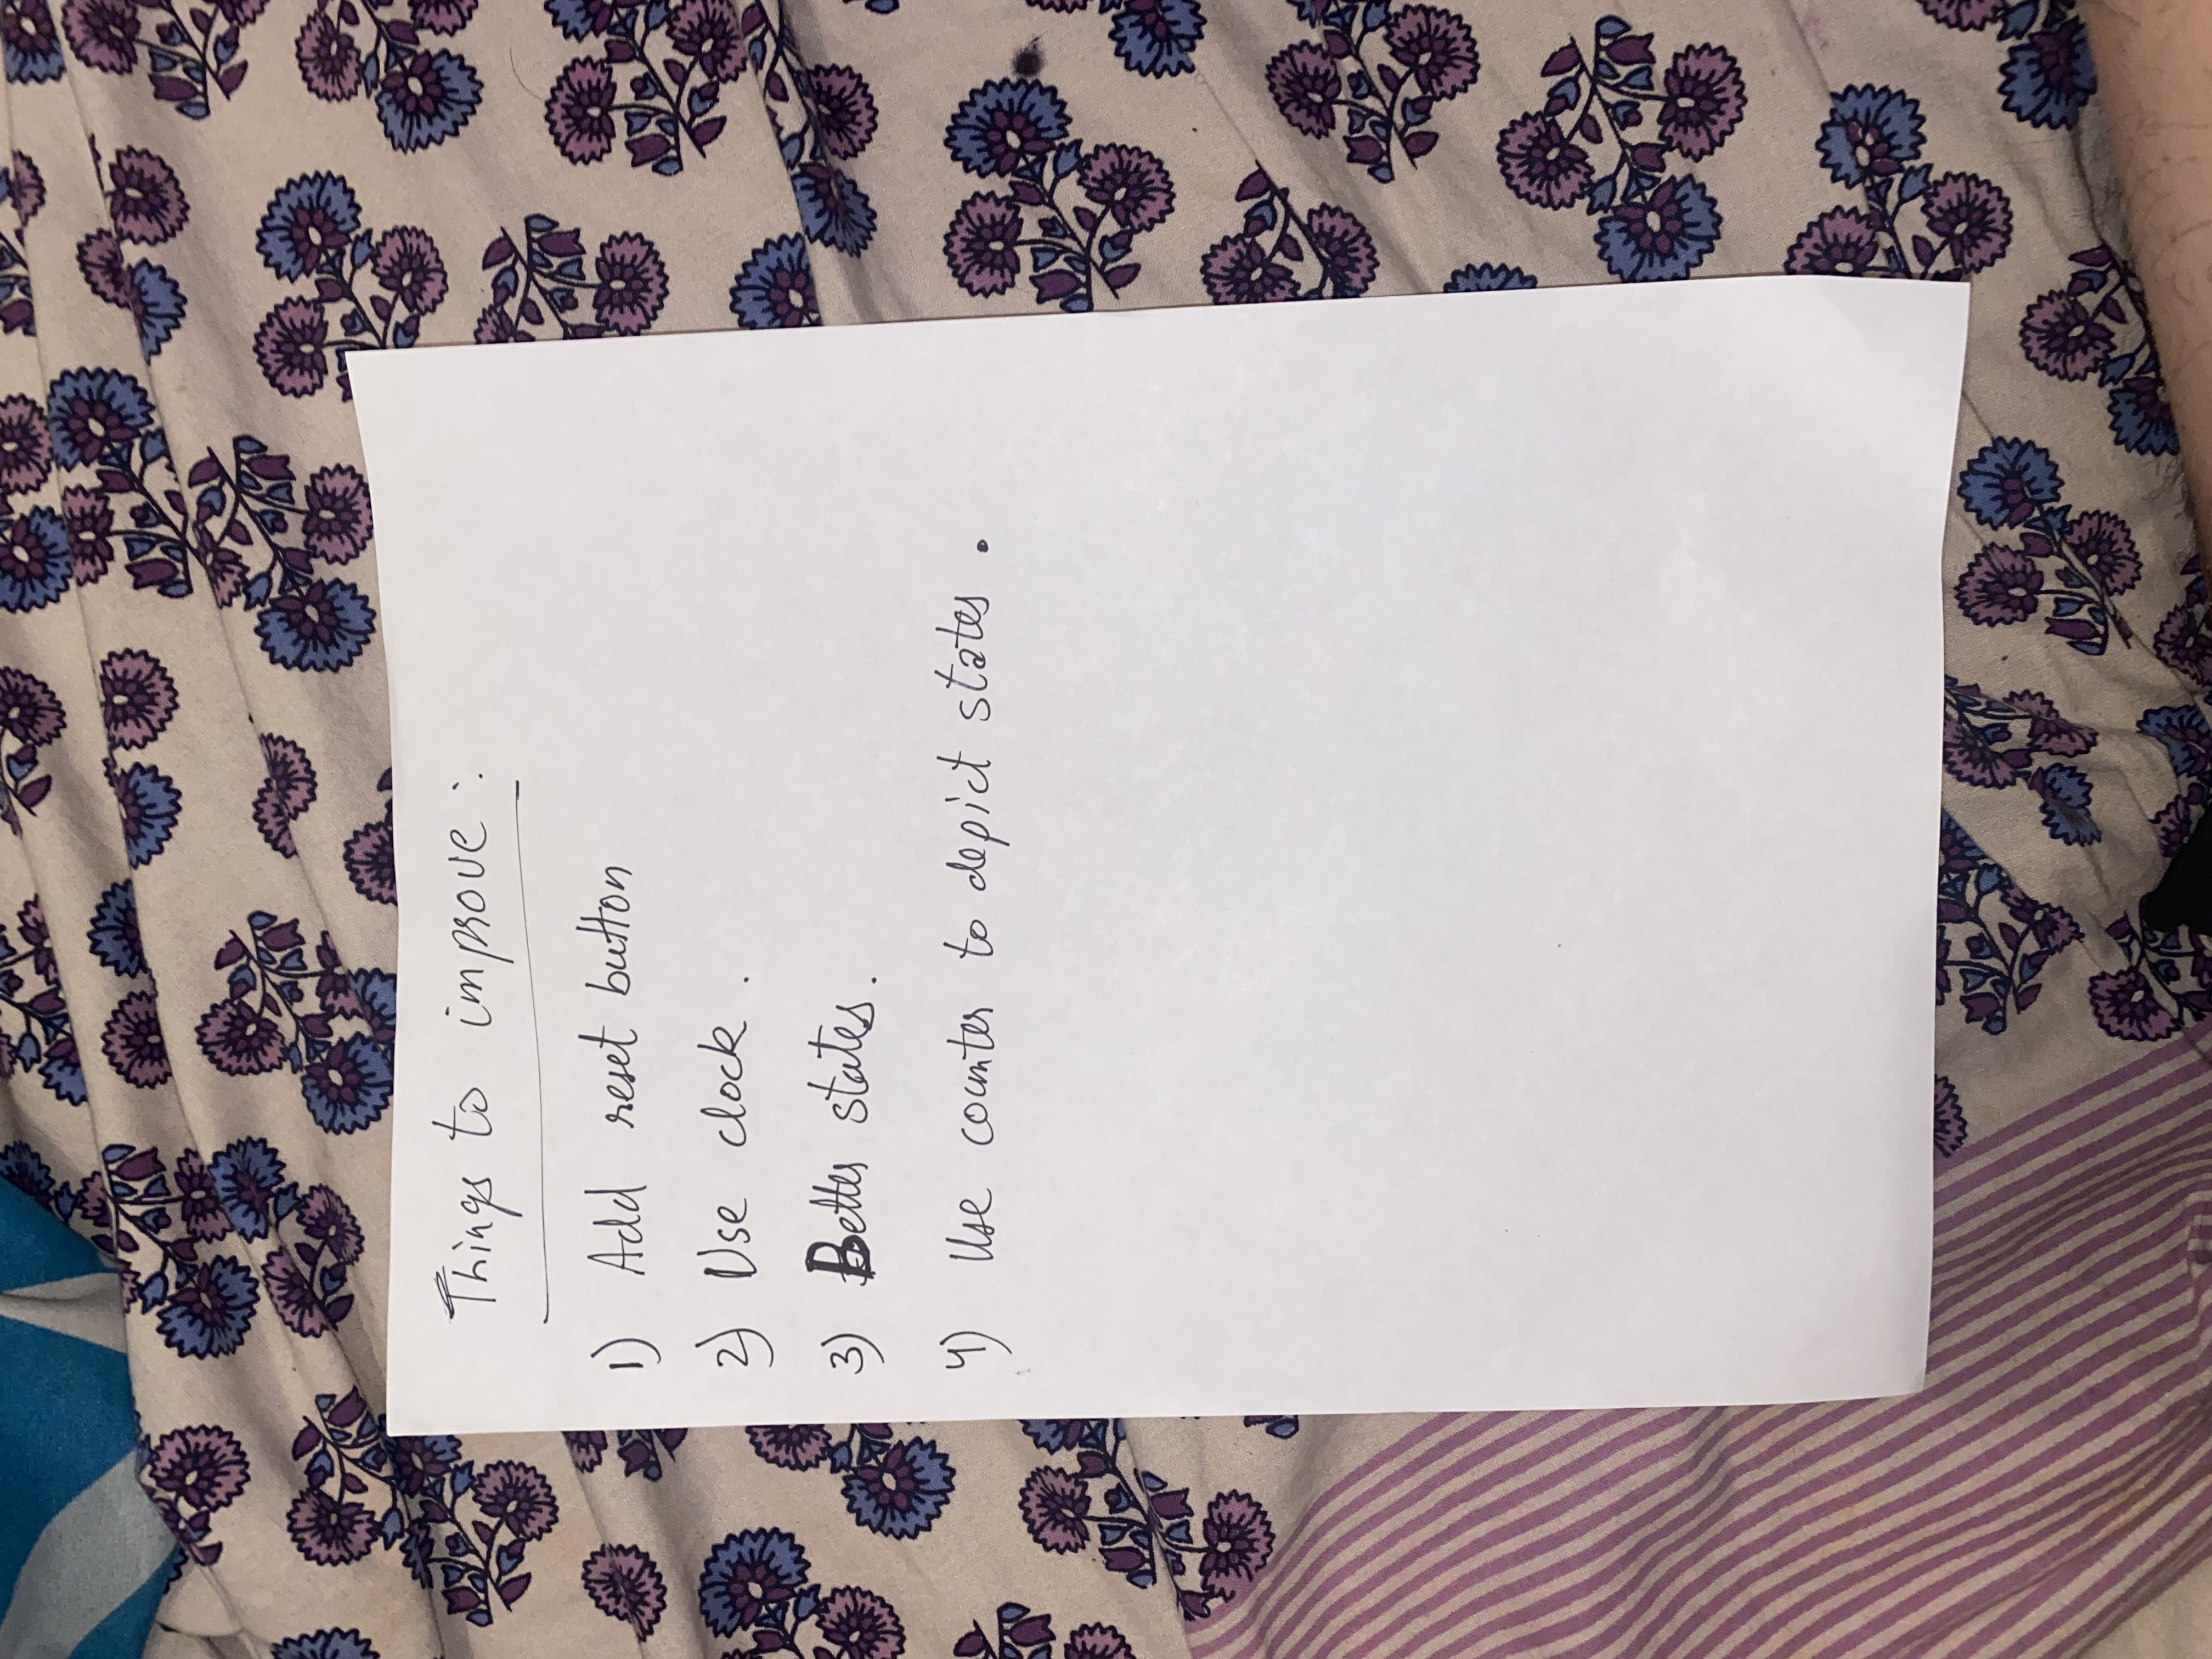 Things to improve :
1) Add reset button
2) Use clock .
3) Better states.
4) Use counter to depict states .